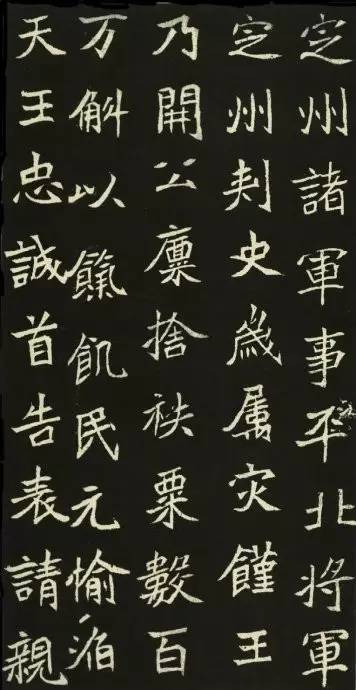 㝎州諸軍事平北将軍
㝎州刾史歳属灾饉王
乃開公廪捨袟粟數百
万斛以餼飢民元愉滔
天王忠誠首告表請親